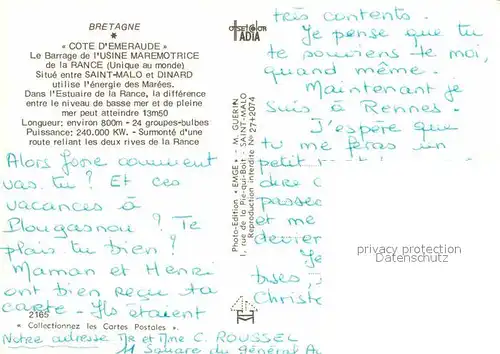 BRETAGNE
*
« COTE D'EMERAUDE »
Le Barrage de l'USINE MAREMOTRICE
de la RANCE (Unique au monde)
Situé entre SAINT-MALO et DINARD
utilise l'énergie des Marées.
Dans l'Estuaire de la Rance, la différence
entre le niveau de basse mer et de pleine
mer peut atteindre 13m50
Longueur; environ 800m - 24 groupes-bulbes
Puissance: 240.000 KW. - Surmonté d'une
route reliant les deux rives de la Rance
Alors comment
vas. tu ? Et ces
vacances à
Plougasnou ? Te
plais tu bien ?
Maman et Henri
ont bien reçu ta
carte - Ils étaient
2165
« Collectionnez les Cartes Postales »
Notre adresse Mr et Mme C. ROUSSEL
11 Square du Général
OFFSET COLOR
IADIA
Photo-Edition « EMGE » - M. GUERIN
1, rue de la Pie-qui-Boit - SAINT-MALO
Reproduction interdite N° 27+2074
très contents.
Je pense que tu
te souviens de moi,
quand même.
Maintenant je
suis à Rennes.
J'espère que
tu me feras un
petit
dire
et me
devier
Je
privacy protection
Datenschutz